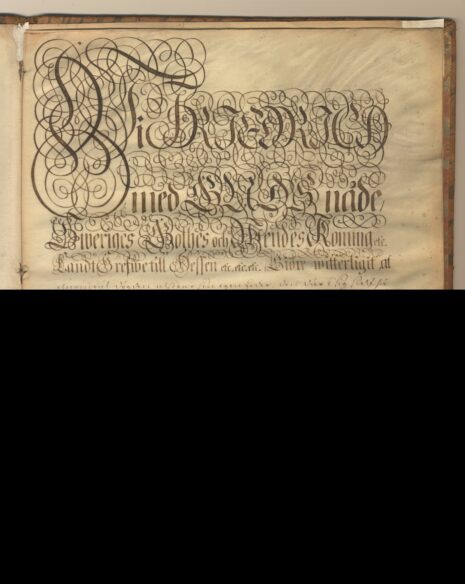 Wi FRIEDRICH
med GUDS nåde,
Sweriges Göthes och Wendes Konung etc.
Landt Grefwe till Hessen etc. etc. etc. Giöre witterligit at